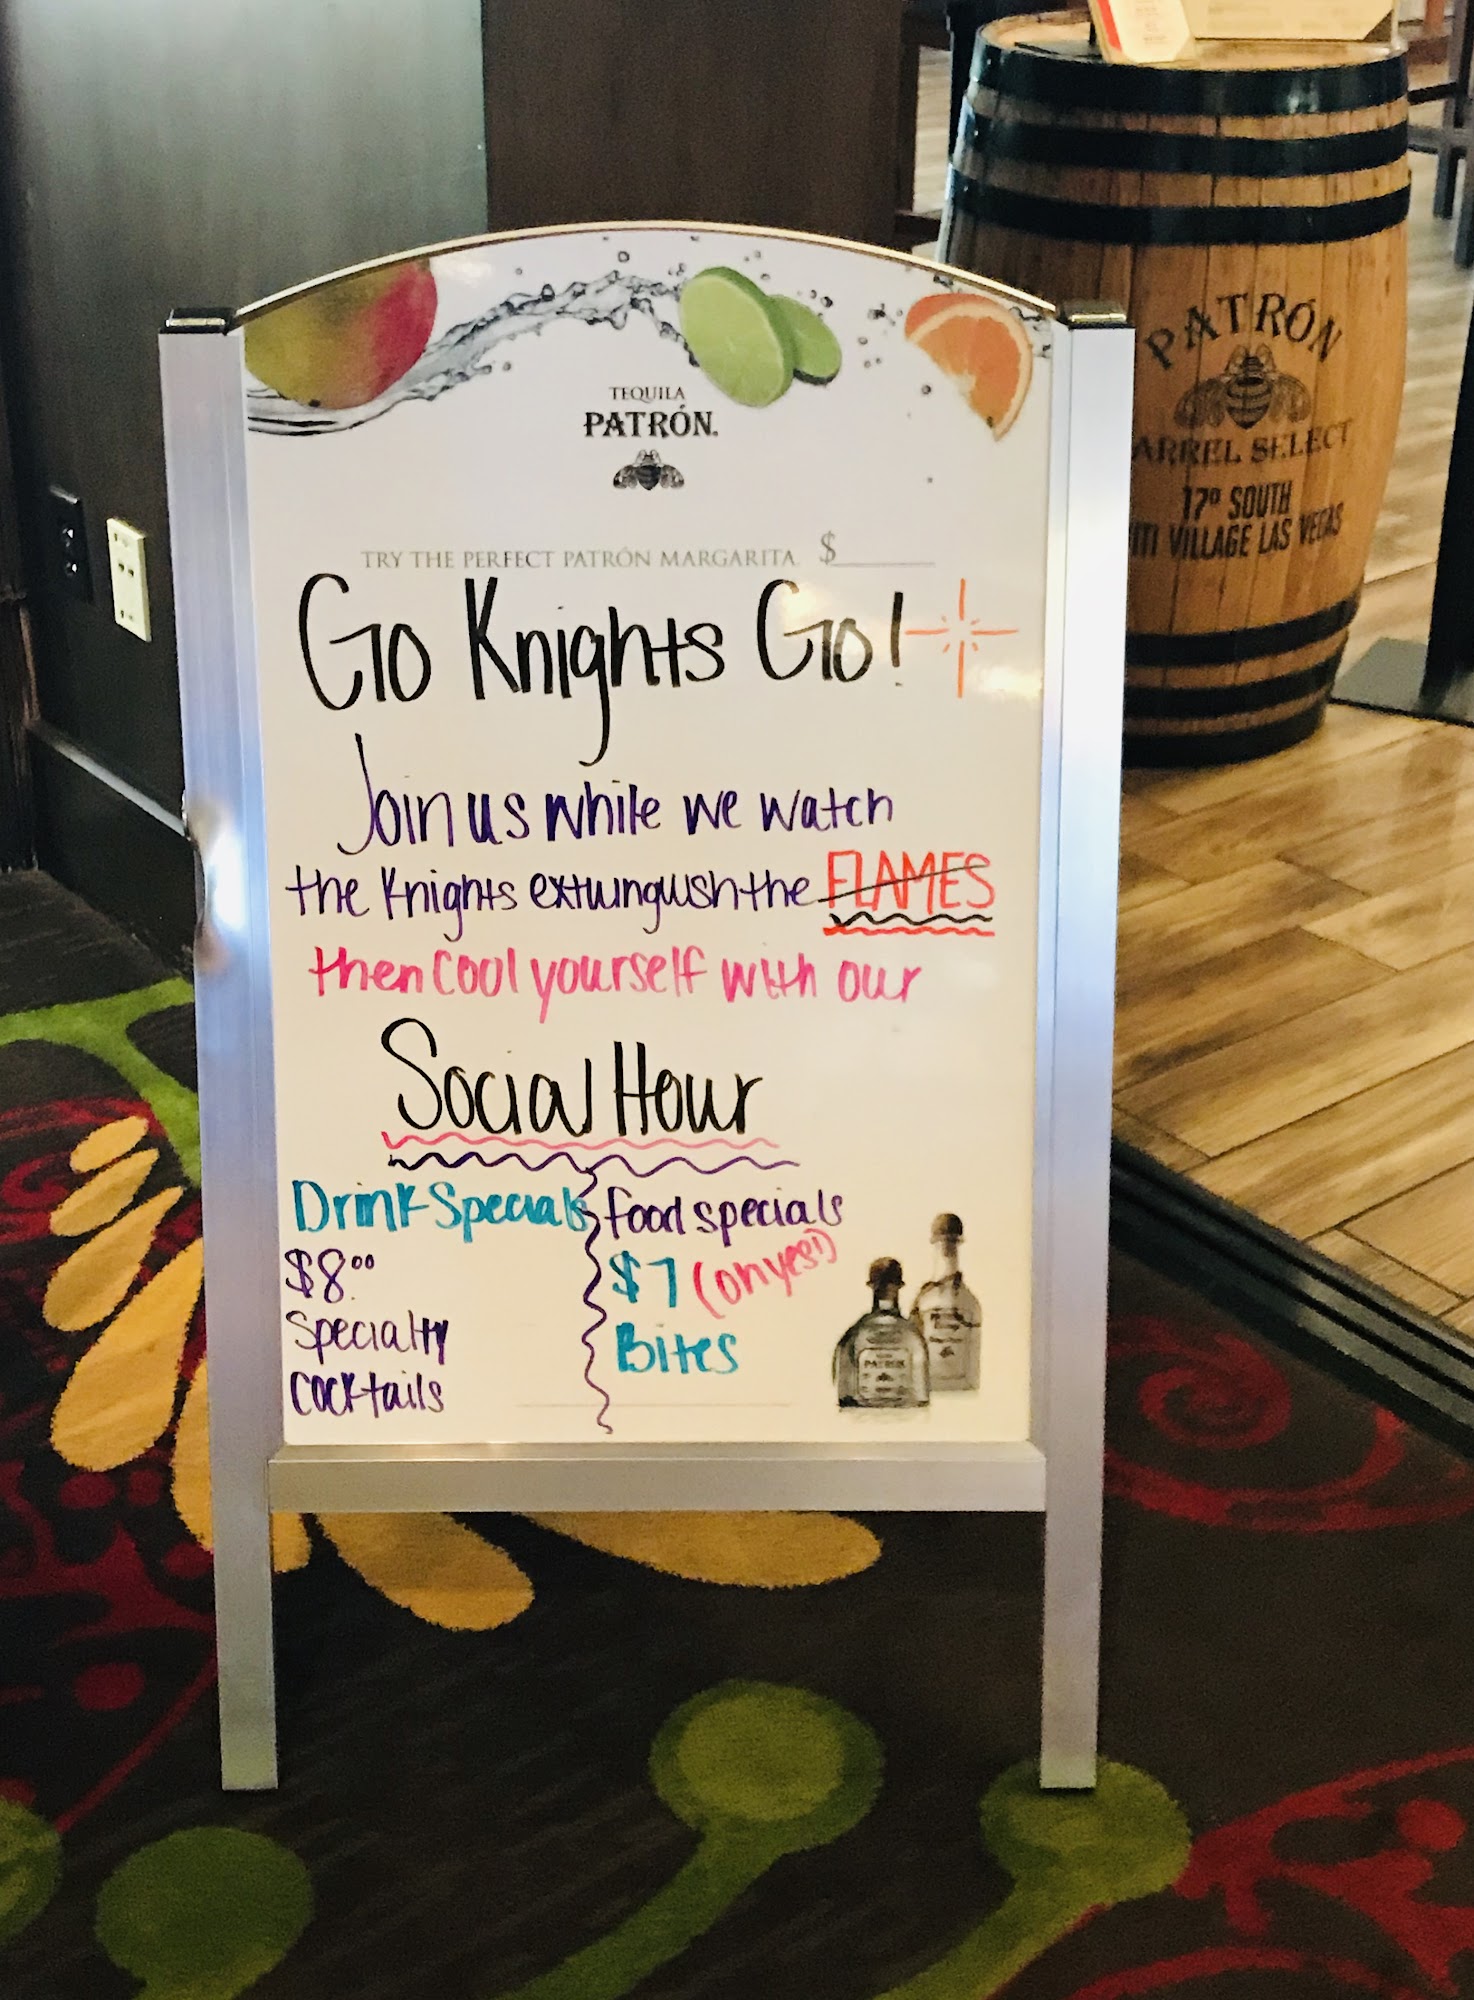 TEQUILA
PATRÓN.
TRY THE PERFECT PATRÓN MARGARITA. $
Go Knights Go!
Join us while we watch
the Knights extuinguish the FLAMES
then cool yourself with our
Social Hour
Drink Specials
$8.00
Specialty
Cocktails
food specials
$7 (oh yes!)
Bites
PATRÓN
PATRÓN
ARREL SELECT
17º SOUTH
ITI VILLAGE LAS VEGAS